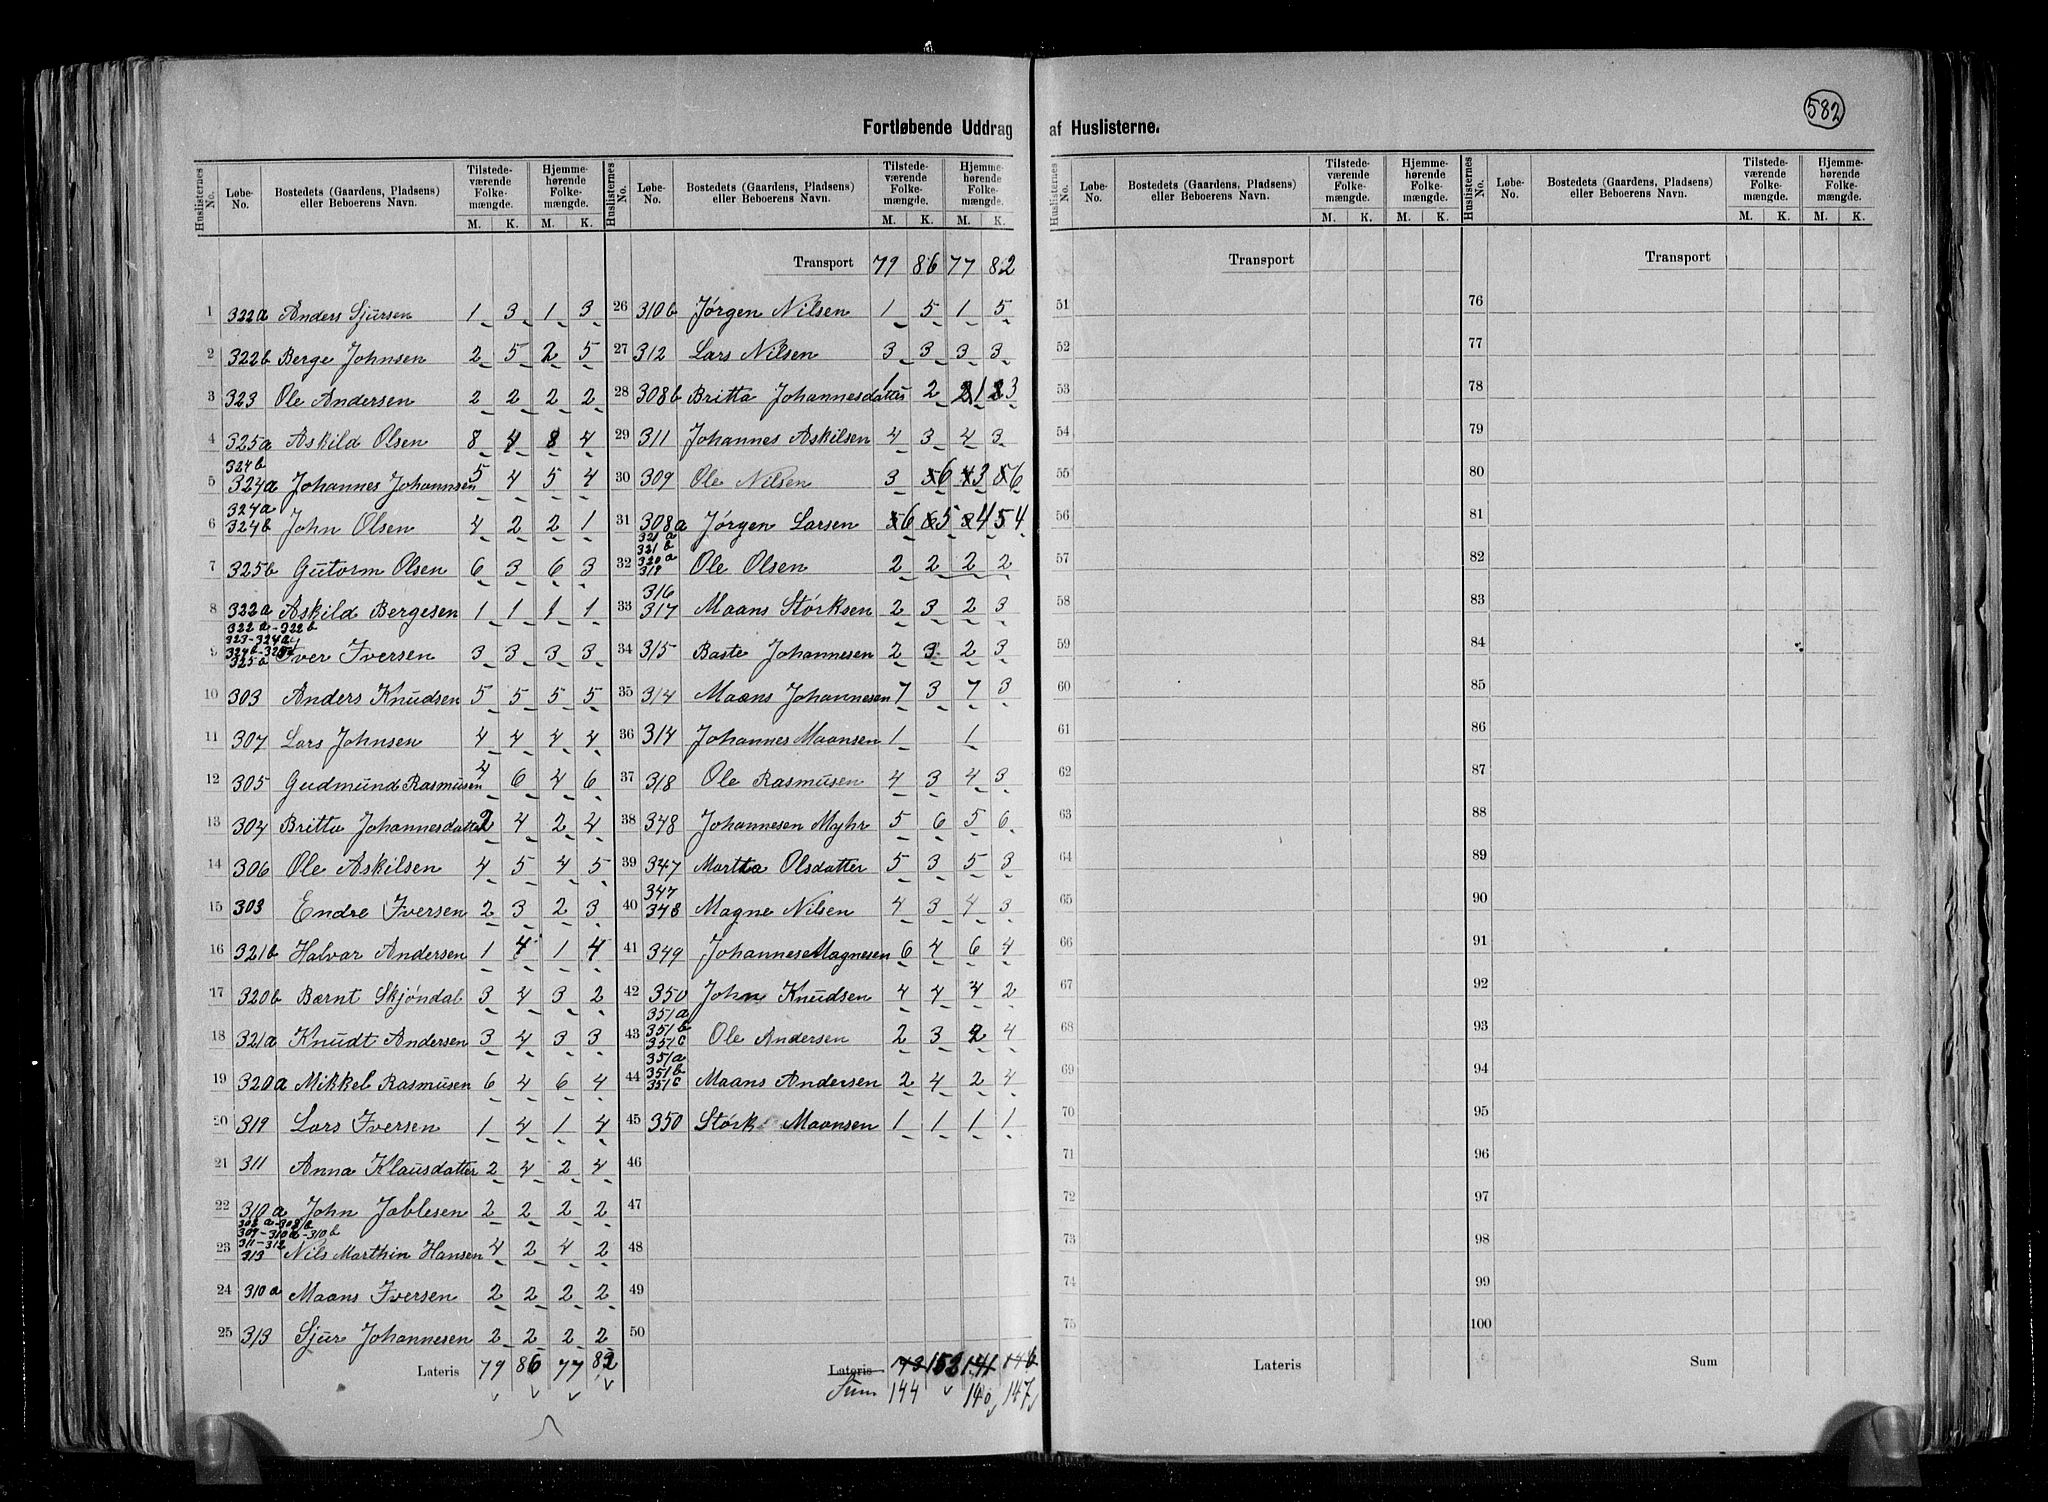 582
Fortløbende Uddrag af Huslisterne.
Huslisternes No. Løbe-No. Bostedets (Gaardens, Pladsens) eller Beboerens Navn. Tilstede-værende Folke-mængde. M. K. Hjemme-hørende Folke-mængde. M. K.
1 322a Anders Sjursen 1 3 1 3
2 322b Berge Johnsen 2 5 2 5
3 323 Ole Andersen 2 2 2 2
4 325a Askild Olsen 8 4 8 4
5 324b 324a Johannes Johannsen 5 4 5 4
6 324a 324b John Olsen 4 2 2 1
7 325b Gutorm Olsen 6 3 6 3
8 322a Askild Bergesen 1 1 1 1
9 322a-322b 323-324a 324b- 325b Iver Iversen 3 3 3 3
10 303 Anders Knudsen 5 5 5 5
11 307 Lars Johnsen 4 4 4 4
12 305 Gudmund Rasmusen 4 6 4 6
13 304 Britta Johannesdatter 2 4 2 4
14 306 Ole Askilsen 4 5 4 5
15 303 Endre Iversen 2 3 2 3
16 321b Halvar Andersen 1 4 1 4
17 320b Bærnt Skjöndal 3 4 3 2
18 321a Knudt Andersen 3 4 3 3
19 320a Mikkel Rasmusen 6 4 6 4
20 319 Lars Iversen 1 4 1 4
21 311 Anna Klausdatter 2 4 2 4
22 310a John Joblesen 2 2 2 2
23 308a-308b 309-310a-310b 311-312 313 Nils Marthin Hansen 4 2 4 2
24 310a Maans Iversen 2 2 2 2
25 313 Sjur Johannesen 2 2 2 2
Lateris 79 86 77 82
Huslisternes No. Løbe-No. Bostedets (Gaardens, Pladsens) eller Beboerens Navn. Tilstede-værende Folke-mængde. M. K. Hjemme-hørende Folke-mængde. M. K.
Transport 79 86 77 82
26 310b Jørgen Nilsen 1 5 1 5
27 312 Lars Nilsen 3 3 3 3
28 308b Britta Johannesdatter 1 2 2 1 2 3
29 311 Johannes Askilsen 4 3 4 3
30 309 Ole Nilsen 3 5 6 4 3 5 6
31 308a Jørgen Larsen 5 6 6 5 4 5 4
32 321a 321b 320a 319 Ole Olsen 2 2 2 2
33 316 317 Maans Størksen 2 3 2 3
34 315 Baste Johannesen 2 3 2 3
35 314 Maans Johannesen 7 3 7 3
36 314 Johannes Maansen 1 1
37 318 Ole Rasmusen 4 3 4 3
38 348 Johannesen Myhr 5 6 5 6
39 347 Martta Olsdatter 5 3 5 3
40 347 348 Magne Nilsen 4 3 4 3
41 349 Johannes Magnesen 6 4 6 4
42 350 John Knudsen 4 4 4 2
43 351a 351b 351c Ole Andersen 2 3 2 4
44 351a 351b 351c Maans Andersen 2 4 2 4
45 350 Størk Maansen 1 1 1 1
46
47
48
49
50
Lateris 143 152 141 146
Sum 144 140 147
Huslisternes No. Løbe-No. Bostedets (Gaardens, Pladsens) eller Beboerens Navn. Tilstede-værende Folke-mængde. M. K. Hjemme-hørende Folke-mængde. M. K.
Transport
51
52
53
54
55
56
57
58
59
60
61
62
63
64
65
66
67
68
69
70
71
72
73
74
75
Lateris
Huslisternes No. Løbe-No. Bostedets (Gaardens, Pladsens) eller Beboerens Navn. Tilstede-værende Folke-mængde. M. K. Hjemme-hørende Folke-mængde. M. K.
Transport
76
77
78
79
80
81
82
83
84
85
86
87
88
89
90
91
92
93
94
95
96
97
98
99
100
Sum